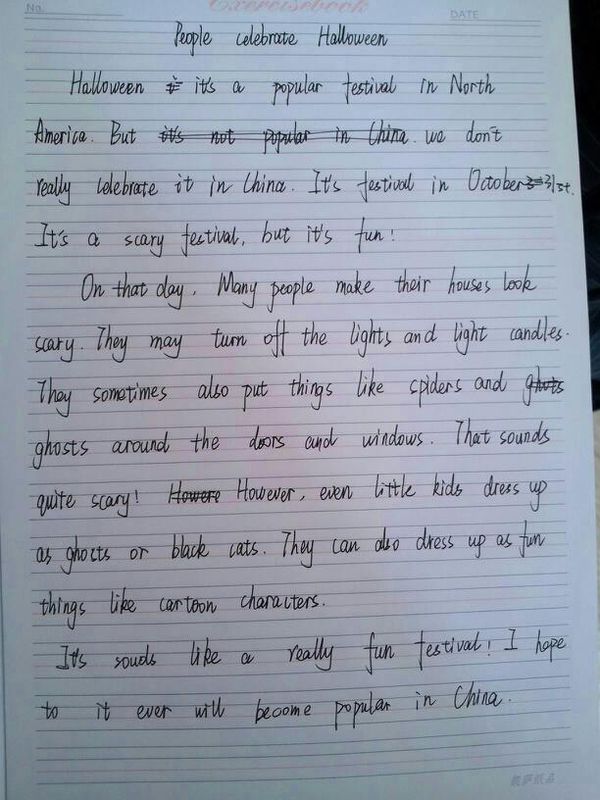 No.
Exercisebook
DATE
People celebrate Halloween
Halloween is it's a popular festival in North
America. But it's not popular in China. we don't
really celebrate it in China. It's festival in October 31st.
It's a scary festival, but it's fun!
On that day, Many people make their houses look
scary. They may turn off the lights and light candles.
They sometimes also put things like spiders and ghots
ghosts around the doors and windows. That sounds
quite scary! Howere However, even little kids dress up
as ghocts or black cats. They can also dress up as fun
things like cartoon characters.
It's souds like a really fun festival! I hope
to it ever will become popular in China.